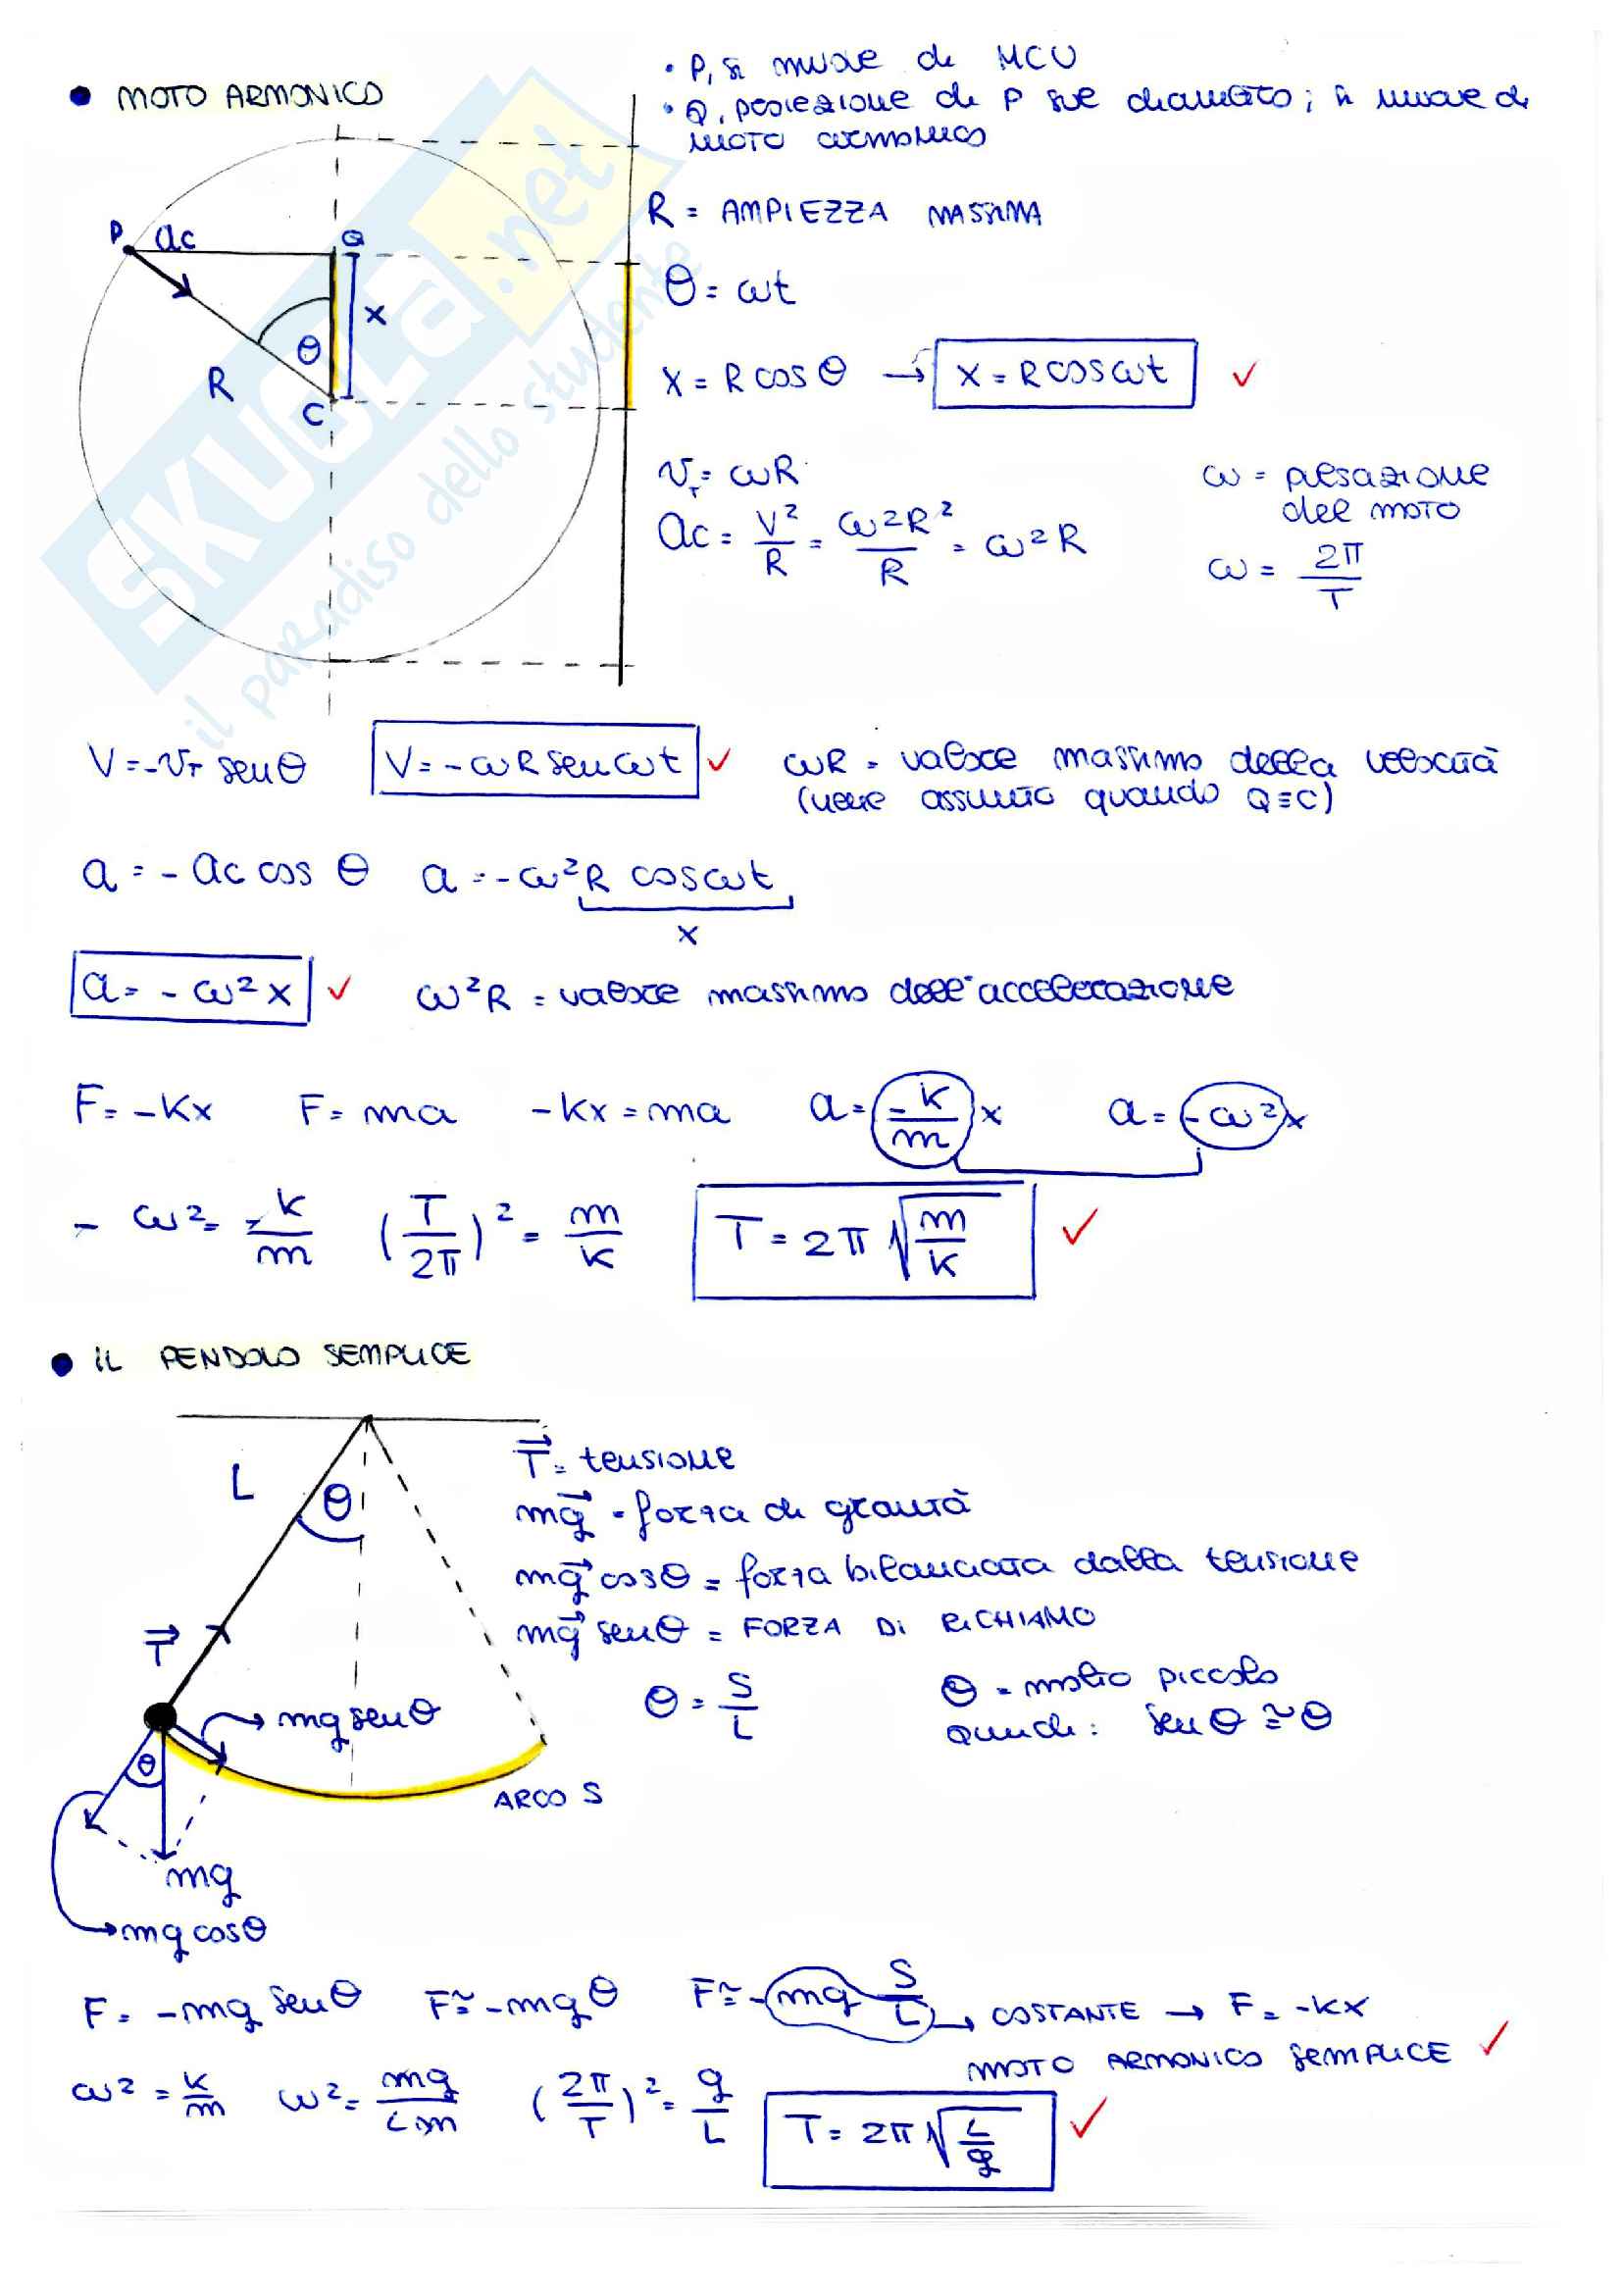 • MOTO ARMONICO
• P, si muove di MCU
• Q, proiezione di P sul diametro; si muove di
moto armonico
R = AMPIEZZA MASSIMA
P ac Q
θ = ωt
x
θ
R
C
x = R cos θ → x = R cos ωt ✓
v_T = ωR
ω = pulsazione
del moto
ac = V²/R = ω²R²/R = ω²R
ω = 2π/T
SKUOLA.net
il paradiso dello studente
V = -v_T sen θ V = -ωR sen ωt ✓ ωR = valore massimo della velocità
(viene assunto quando Q ≡ C)
a = - ac cos θ a = -ω²R cos ωt
x
a = - ω²x ✓ ω²R = valore massimo dell'accelerazione
F = -Kx F = ma -Kx = ma a = -K/m x a = -ω²x
- ω² = -K/m (T/2π)² = m/K T = 2π √(m/K) ✓
• IL PENDOLO SEMPLICE
L
θ
T⃗ = tensione
mg⃗ = forza di gravità
mg⃗ cosθ = forza bilanciata dalla tensione
mg⃗ senθ = FORZA DI RICHIAMO
T⃗
θ = S/L
θ = molto piccolo
quindi: sen θ ≅ θ
mg senθ
θ
ARCO S
mg
mg cosθ
F = -mg senθ F ≅ -mg θ F ≅ -mg S/L → COSTANTE → F = -Kx
MOTO ARMONICO SEMPLICE ✓
ω² = K/m ω² = mg/Lm (2π/T)² = g/L T = 2π √(L/g) ✓